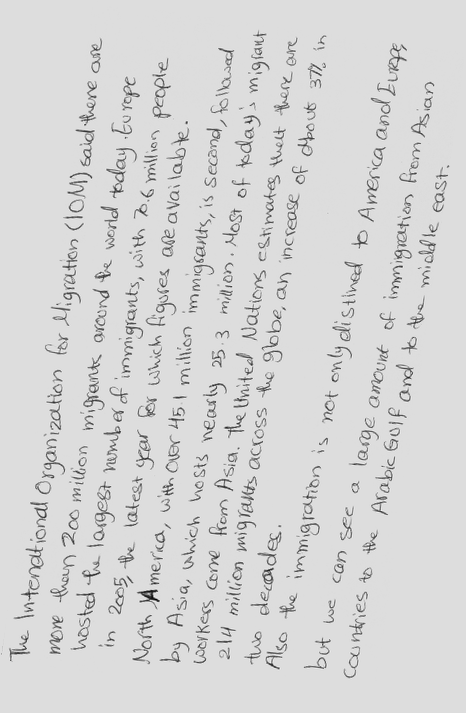 The International Organization for Migration (IOM) said there are
more than 200 million migrants around the world today. Europe
hosted the largest number of immigrants, with 70.6 million people
in 2005, the latest year for which figures are available.
North America, with over 45.1 million immigrants, is second, followed
by Asia, which hosts nearly 25.3 million. Most of today's migrant
workers come from Asia. The United Nations estimates that there are
214 million migrants across the globe, an increase of about 37% in
two decades.
Also the immigration is not only distined to America and Europe
but we can see a large amount of immigration from Asian
countries to the Arabic Gulf and to the middle east.